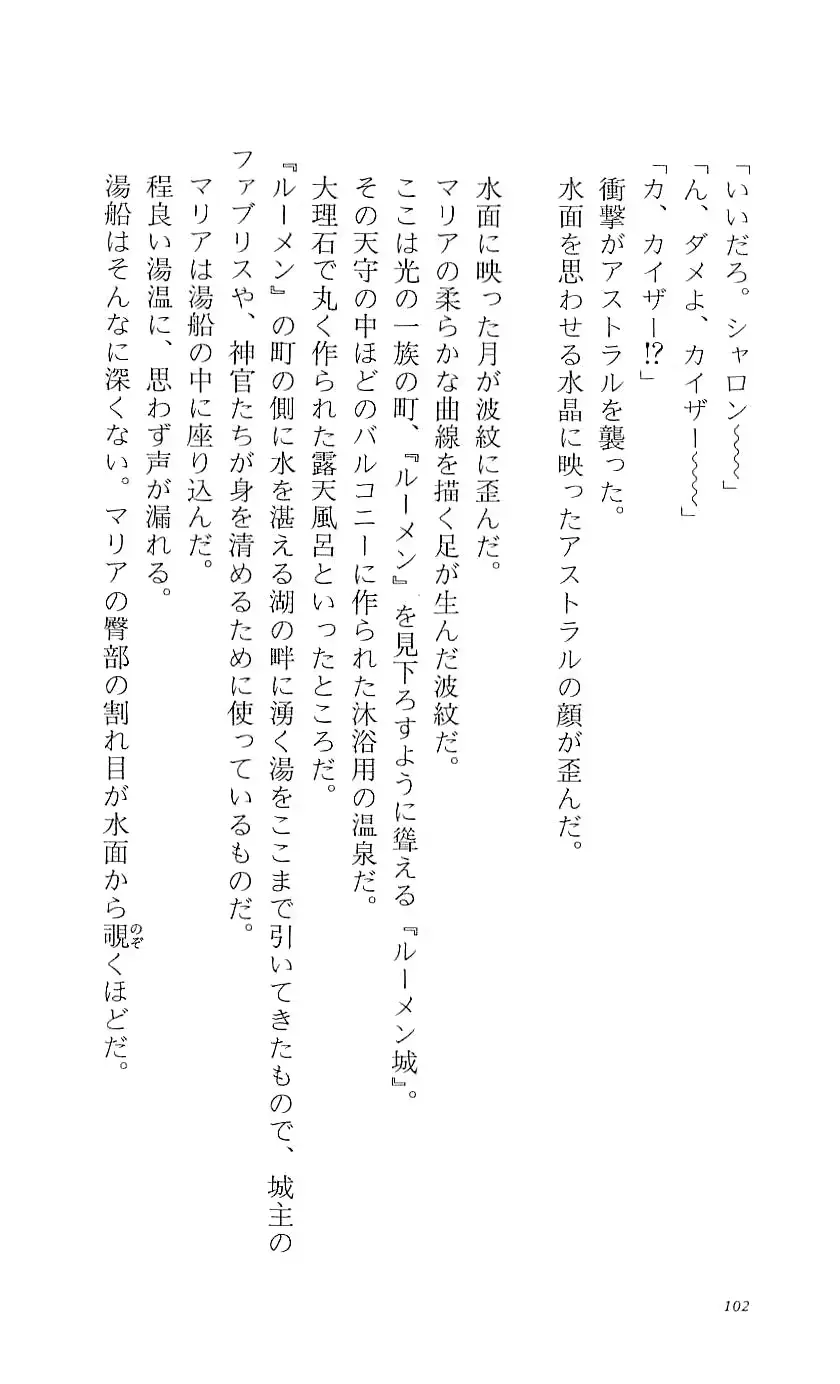 「いいだろ。シャロン～～～」
「ん、ダメよ、カイザー～～～」
「カ、カイザー!?」
衝撃がアストラルを襲った。
水面を思わせる水晶に映ったアストラルの顔が歪んだ。
水面に映った月が波紋に歪んだ。
マリアの柔らかな曲線を描く足が生んだ波紋だ。
ここは光の一族の町、『ルーメン』を見下ろすように聳える『ルーメン城』。
その天守の中ほどのバルコニーに作られた沐浴用の温泉だ。
大理石で丸く作られた露天風呂といったところだ。
『ルーメン』の町の側に水を湛える湖の畔に湧く湯をここまで引いてきたもので、城主の
ファブリスや、神官たちが身を清めるために使っているものだ。
マリアは湯船の中に座り込んだ。
程良い湯温に、思わず声が漏れる。
湯船はそんなに深くない。マリアの臀部の割れ目が水面から覗くほどだ。
のぞ
102